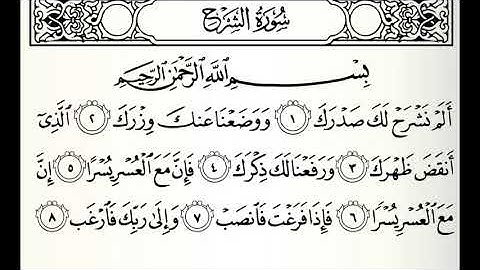 سُورَةُ الشَّرْحِ
بِسْمِ اللَّهِ الرَّحْمَٰنِ الرَّحِيمِ
أَلَمْ نَشْرَحْ لَكَ صَدْرَكَ ١ وَوَضَعْنَا عَنكَ وِزْرَكَ ٢ الَّذِي
أَنقَضَ ظَهْرَكَ ٣ وَرَفَعْنَا لَكَ ذِكْرَكَ ٤ فَإِنَّ مَعَ الْعُسْرِ يُسْرًا ٥ إِنَّ
مَعَ الْعُسْرِ يُسْرًا ٦ فَإِذَا فَرَغْتَ فَانصَبْ ٧ وَإِلَىٰ رَبِّكَ فَارْغَب ٨